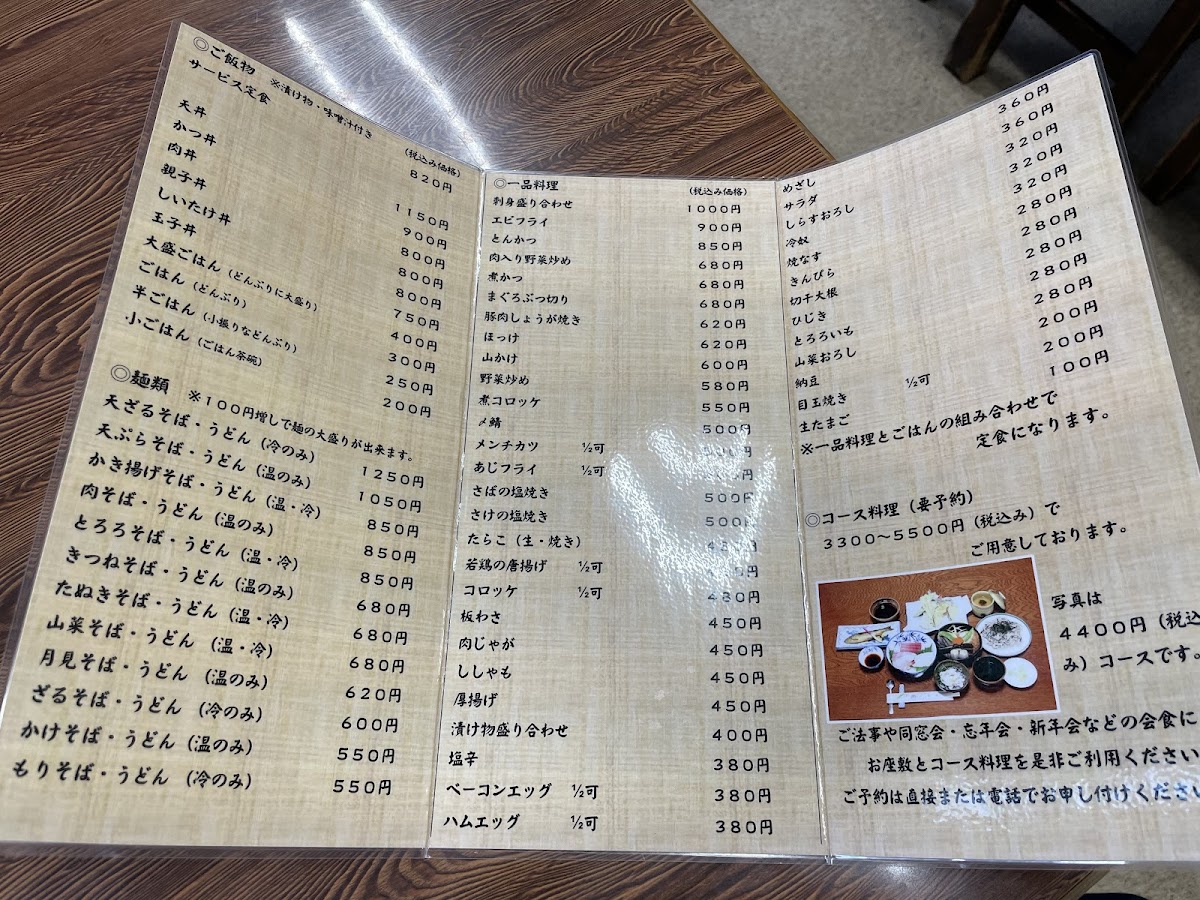 ◎ご飯物 ※漬け物・味噌汁付き
(税込み価格)
サービス定食 820円
天丼 1150円
かつ丼 900円
肉丼 800円
親子丼 800円
しいたけ丼 800円
玉子丼 750円
大盛ごはん(どんぶりに大盛り) 400円
ごはん(どんぶり) 300円
半ごはん(小振りなどんぶり) 250円
小ごはん(ごはん茶碗) 200円
◎麺類 ※100円増しで麺の大盛りが出来ます。
天ざるそば・うどん(冷のみ) 1250円
天ぷらそば・うどん(温のみ) 1050円
かき揚げそば・うどん(温・冷) 850円
肉そば・うどん(温のみ) 850円
とろろそば・うどん(温・冷) 850円
きつねそば・うどん(温のみ) 680円
たぬきそば・うどん(温・冷) 680円
山菜そば・うどん(温・冷) 680円
月見そば・うどん(温のみ) 620円
ざるそば・うどん(冷のみ) 600円
かけそば・うどん(温のみ) 550円
もりそば・うどん(冷のみ) 550円
◎一品料理 (税込み価格)
刺身盛り合わせ 1000円
エビフライ 900円
とんかつ 850円
肉入り野菜炒め 680円
煮かつ 680円
まぐろぶつ切り 680円
豚肉しょうが焼き 620円
ほっけ 620円
山かけ 600円
野菜炒め 580円
煮コロッケ 550円
〆鯖 500円
メンチカツ ½可
あじフライ ½可
さばの塩焼き 500円
さけの塩焼き 500円
たらこ(生・焼き)
若鶏の唐揚げ ½可
コロッケ ½可 480円
板わさ 450円
肉じゃが 450円
ししゃも 450円
厚揚げ 450円
漬け物盛り合わせ 400円
塩辛 380円
ベーコンエッグ ½可 380円
ハムエッグ ½可 380円
めざし 360円
サラダ 360円
しらすおろし 320円
冷奴 320円
焼なす 320円
きんぴら 280円
切干大根 280円
ひじき 280円
とろろいも 280円
山菜おろし 280円
納豆 200円
目玉焼き ½可 200円
生たまご 100円
※一品料理とごはんの組み合わせで
定食になります。
◎コース料理(要予約)
3300〜5500円(税込み)で
ご用意しております。
写真は
4400円(税込
み)コースです。
ご法事や同窓会・忘年会・新年会などの会食に
お座敷とコース料理を是非ご利用ください
ご予約は直接または電話でお申し付けくださ